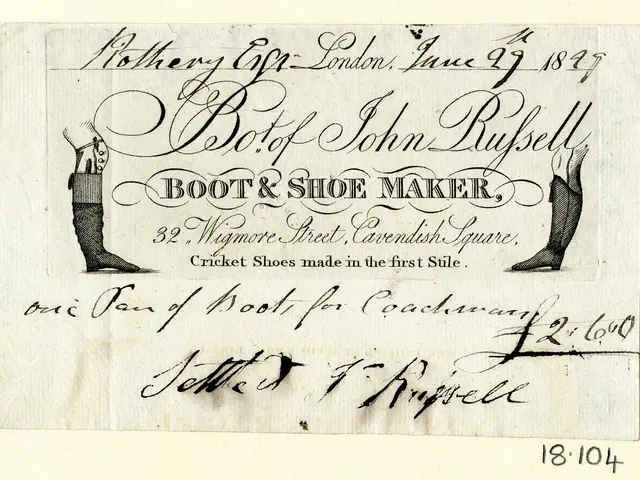 Rothery Esqr London, June 29th 1829
Bot. of John Russell,
BOOT & SHOE MAKER,
32, Wigmore Street, Cavendish Square,
Cricket Shoes made in the first Stile.
one Pair of Boots for Coachman
£2.6.0
Settled J Russell
18.104